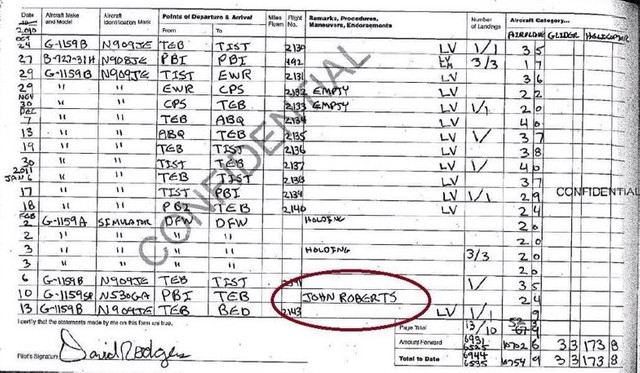 Date 2010
Aircraft Make and Model
Aircraft Identification Mark
Points of Departure & Arrival
From To
Miles Flown
Flight No.
Remarks, Procedures, Maneuvers, Endorsements
Number of Landings
Aircraft Category...
AIRPLANE GLIDER HELICOPTER
OCT 24 G-1159B N909JE TEB TIST 2130 LV 1/1 3 5
27 B-727-31H N908JE PBI PBI 492 LV 3/3 1 7
29 G-1159B N909JE TIST EWR 2131 LV 3 6
29 " " EWR CPS 2132 EMPTY 2 2
NOV 30 " " CPS TEB 2133 EMPTY LV 1/1 2 0
DEC 7 " " TEB ABQ 2134 LV 4 0
13 " " ABQ TEB 2135 LV 1/ 3 7
19 " " TEB TIST 2136 LV 3 8
30 " " TIST TEB 2137 LV 1/ 4 0
2011 JAN 6 " " TEB TIST 2138 LV 3 7
17 " " TIST PBI 2139 LV 1/1 2 9
18 " " PBI TEB 2140 LV 2 4
FEB 2 G-1159A SIMULATOR DFW DFW HOLDING 2 0
2 " " " " 2 0
3 " " " " HOLDING 2 0
3 " " " " 3/3 2 0
6 G-1159B N909JE TEB TIST 2141 1/ 3 5
10 N530GA PBI TEB JOHN ROBERTS 2 4
13 G-1159B N909JE TEB BED 2143 LV 1/1 9
CONFIDENTIAL
CONFIDENTIAL
I certify that the statements made by me on this form are true.
Pilot's Signature David Rodgers
Page Total 13/10
Amount Forward 6931 6525 10702 6 33 173 8
Total to Date 6944 6535 10754 9 33 173 8